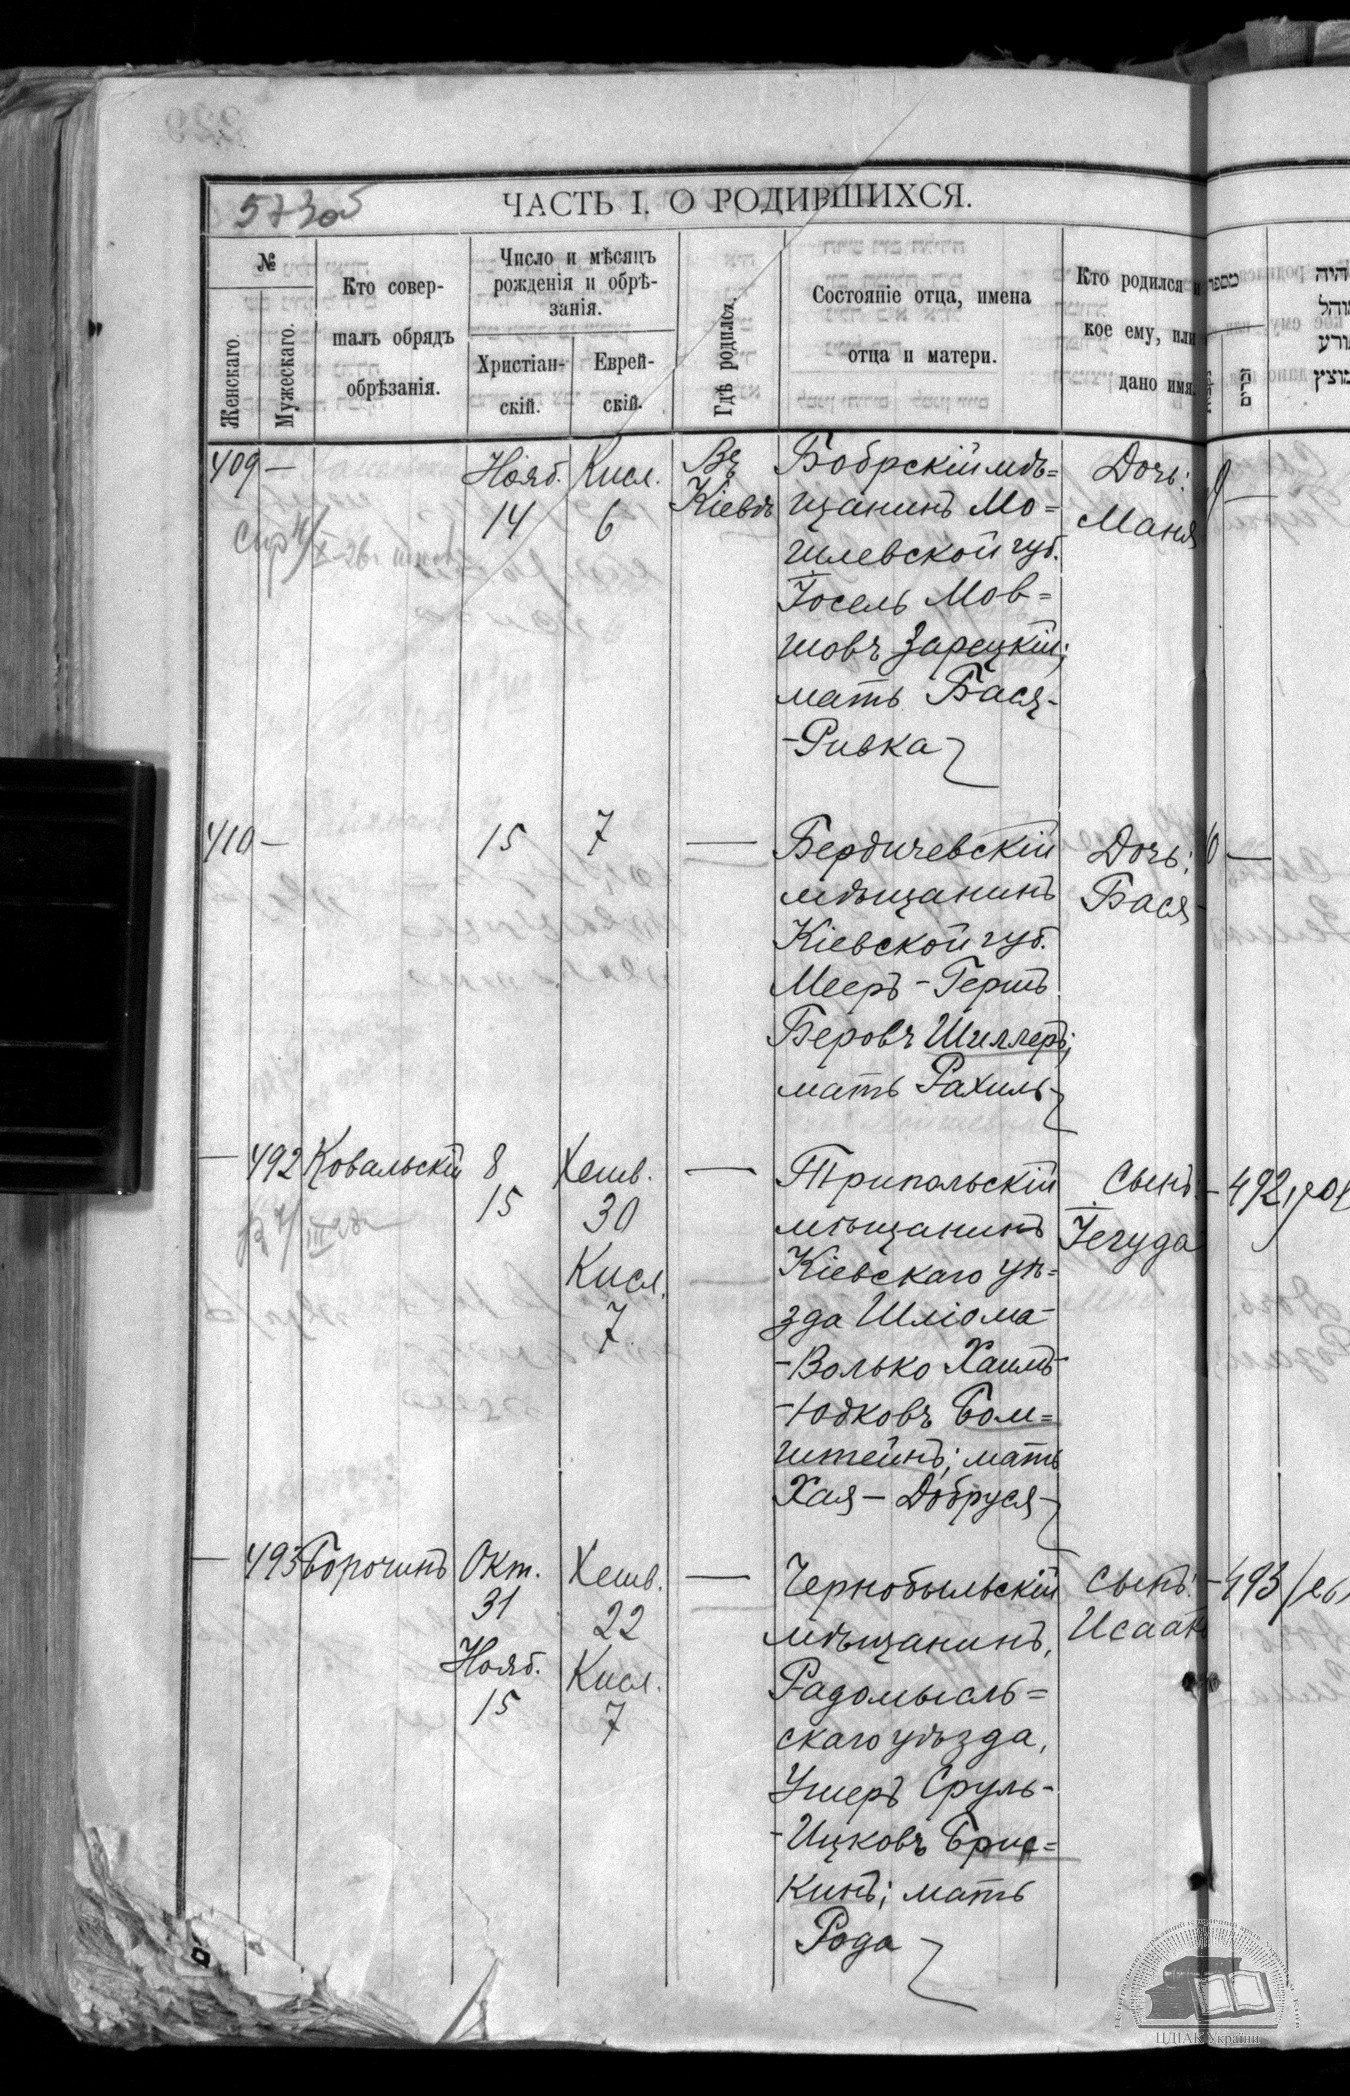 573об
ЧАСТЬ I. О РОДИВШИХСЯ.
№
Женскаго.
Мужескаго.
Кто совер-
шалъ обрядъ
обрѣзанія.
Число и мѣсяцъ
рожденія и обрѣ-
занія.
Христіан-
скій.
Еврей-
скій.
Гдѣ родился.
Состояніе отца, имена
отца и матери.
Кто родился и
кое ему, или
дано имя.
409 —
Нояб.
14
Кисл.
6
Въ
Кіевѣ
Бобрскій мѣ=
щанинъ Мо=
гилевской губ.
Іосель Мов=
шовъ Зарецкій;
мать Бася-
-Ривка
Дочь:
Маня
410 —
15
7
—
Бердичевскій
мѣщанинъ
Кіевской губ.
Мееръ-Гершъ
Беровъ Шиллеръ;
мать Рахиль
Дочь:
Бася
— 492
Ковальскій
8
15
Хешв.
30
Кисл.
7
—
Трипольскій
мѣщанинъ
Кіевскаго уѣ=
зда Шліома-
-Волько Хаимъ-
-Юдковъ Бом=
штейнъ; мать
Хая-Добруся
Сынъ
Іегуда
492
— 493
Борочинъ
Окт.
31
Нояб.
15
Хешв.
22
Кисл.
7
—
Чернобыльскій
мѣщанинъ,
Радомысль=
скаго уѣзда,
Ушеръ Сруль-
-Ицковъ Брис=
кинъ; мать
Рода
Сынъ:
Исаакъ
493
ЦДІАК України